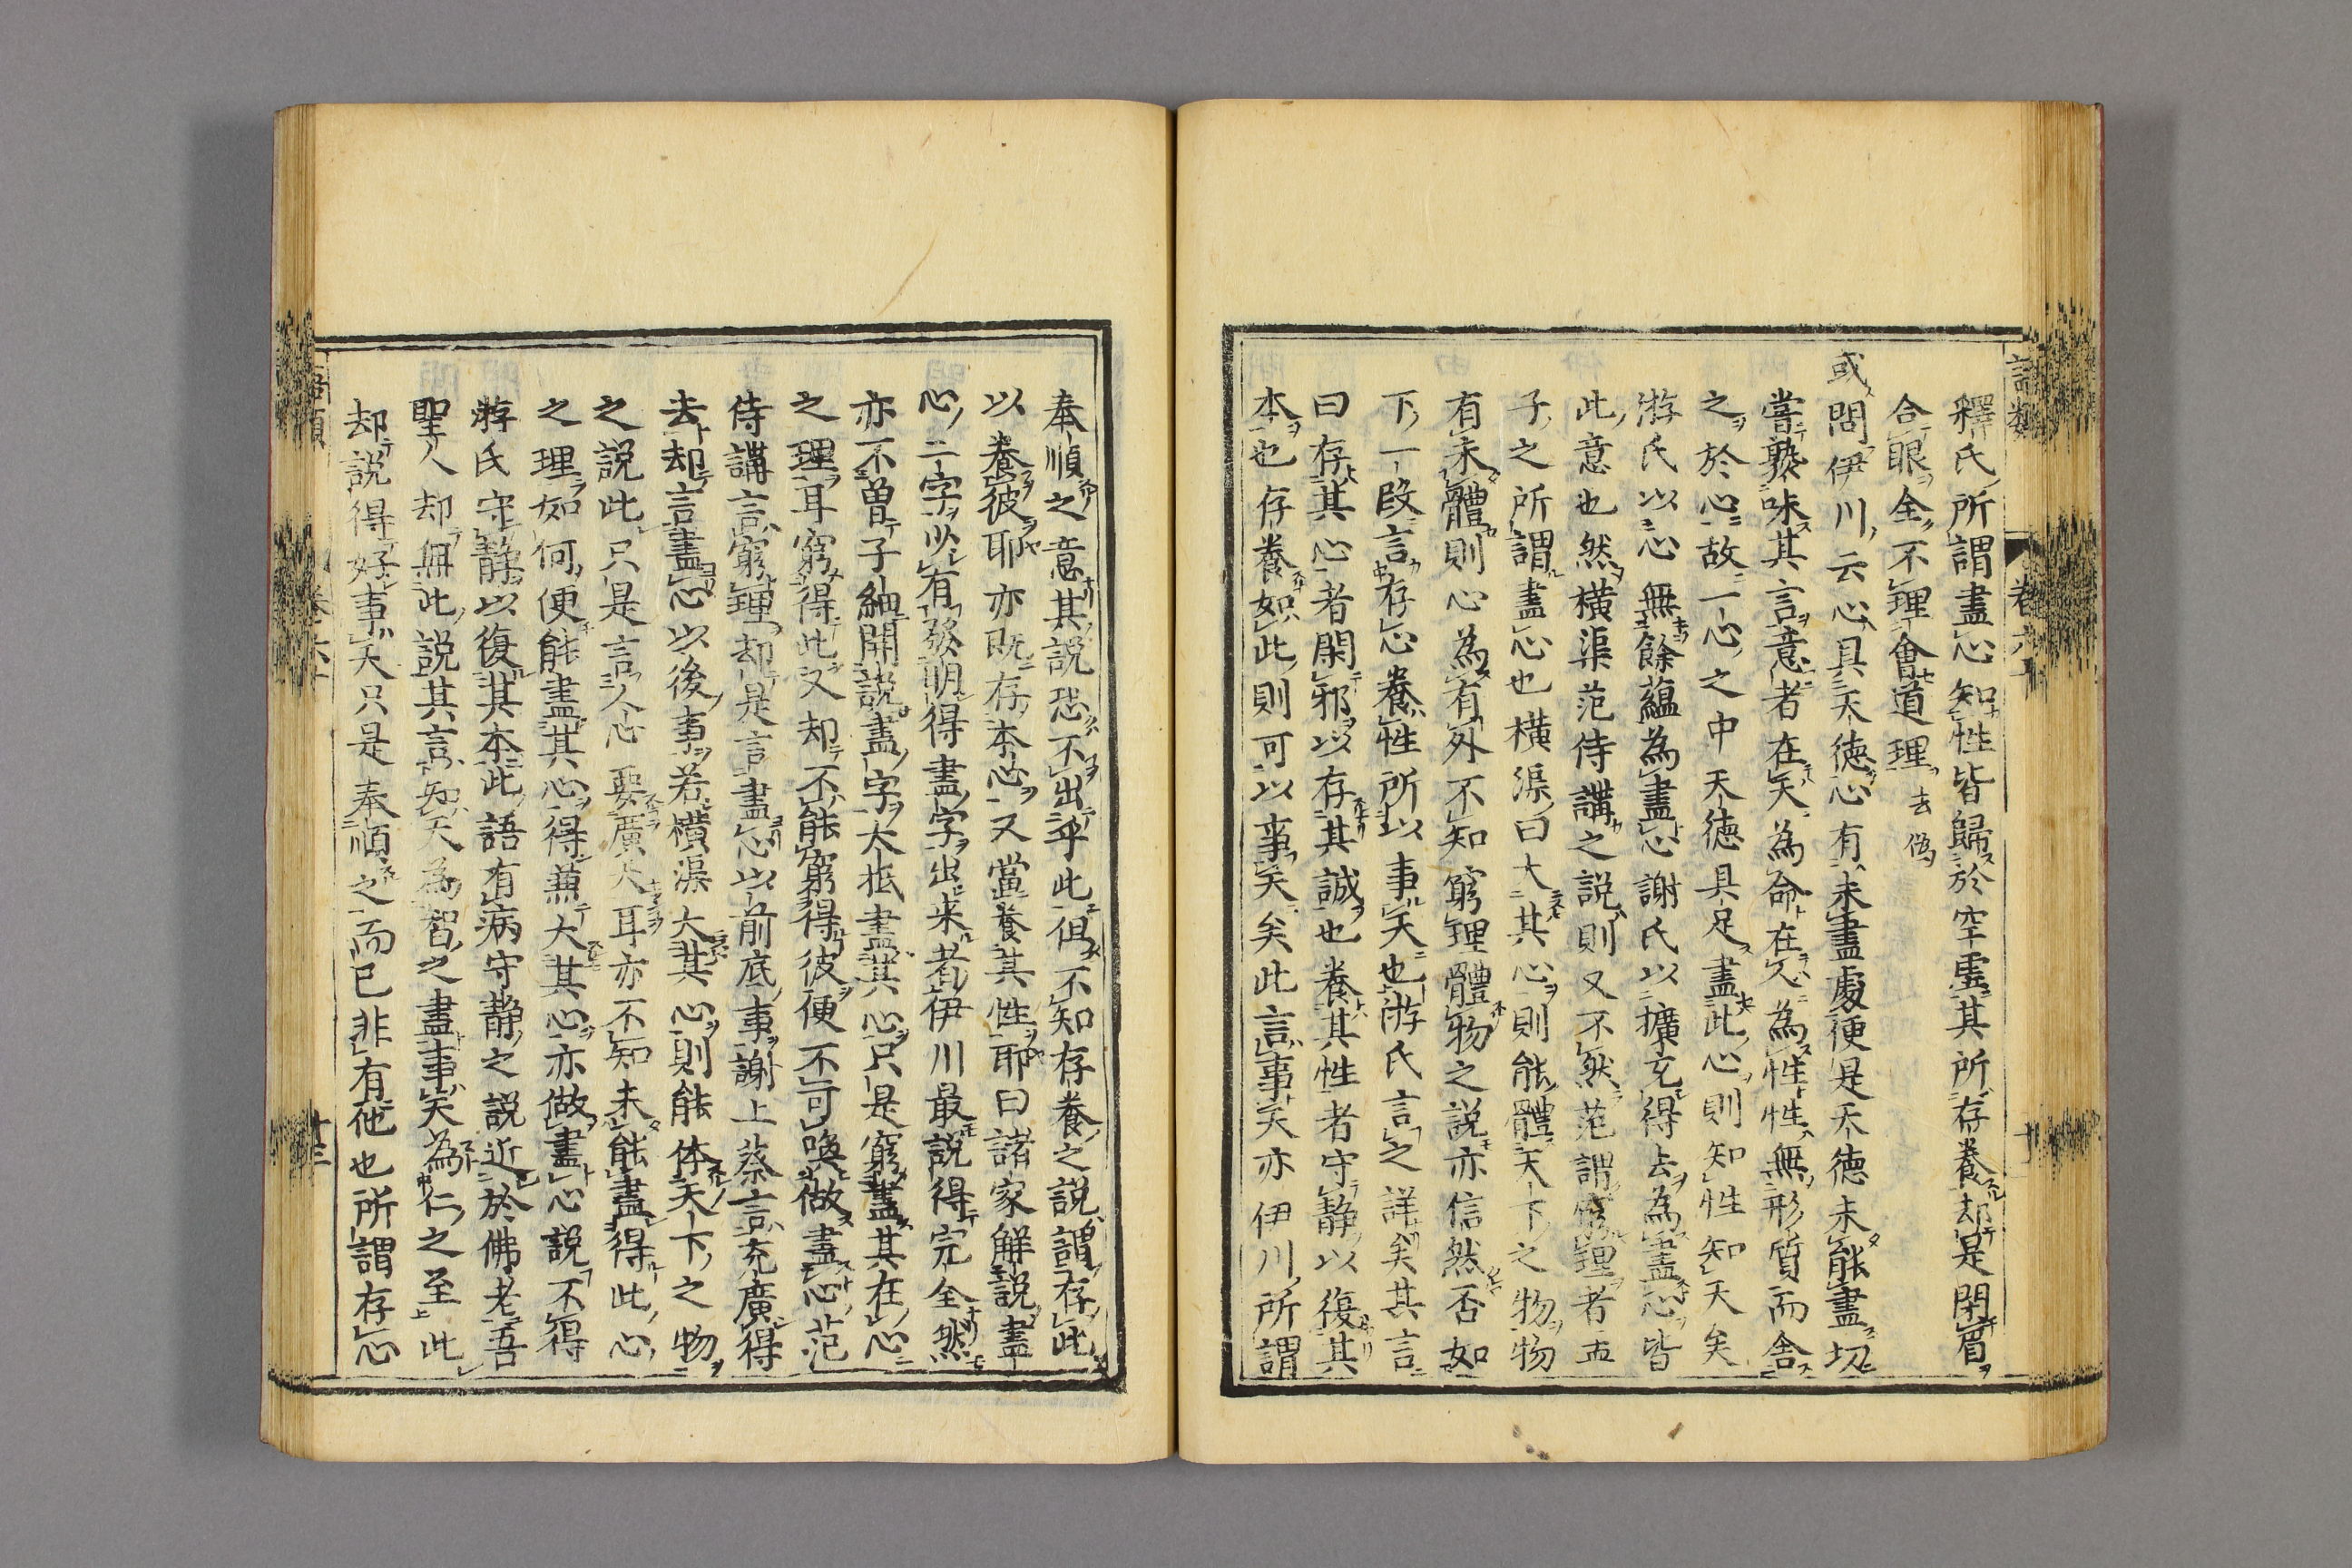 語類
卷六十
釋氏所謂盡心知性皆歸於空虛其所存養却是閉眉
合眼全不理會道理去偽
或問伊川云心具天德心有未盡處便是天德未能盡切
嘗熟味其言意者在天為命在人為性性無形質而舍
之於心故一心之中天德具足盡此心則知性知天矣
游氏以心無餘蘊為盡心謝氏以擴充得去為盡心皆
此意也然橫渠范侍講之說則又不然范謂窮理者孟
子之所謂盡心也橫渠曰大其心則能體天下之物物
有未體則心為有外不知窮理體物之說亦信然否如
下一段言存心養性所以事天也游氏言之詳矣其言
曰存其心者閑邪以存其誠也養其性者守靜以復其
本也存養如此則可以事天矣此言事天亦伊川所謂
奉順之意其說恐不出乎此但不知存養之說謂存此
以養彼耶亦既存本心又當養其性耶曰諸家解說盡
心二字少有發明得盡字出來者伊川最說得完全然
亦不曾子細開說盡字大抵盡其心只是窮盡其在心
之理耳窮得此又却不能窮得彼便不可喚做盡心范
侍講言窮理却是言盡心以前底事謝上蔡言充廣得
去却言盡心以後事若橫渠大其心則能体天下之物
之說此只是言人心要廣大耳亦不知未能盡得此心
之理如何便能盡其心得兼大其心亦做盡心說不得
游氏守靜以復其本此語有病守靜之說近於佛老吾
聖人却無此說其言知天為智之盡事天為仁之至此
却說得好事天只是奉順之而已非有他也所謂存心
語類
卷六十
十三